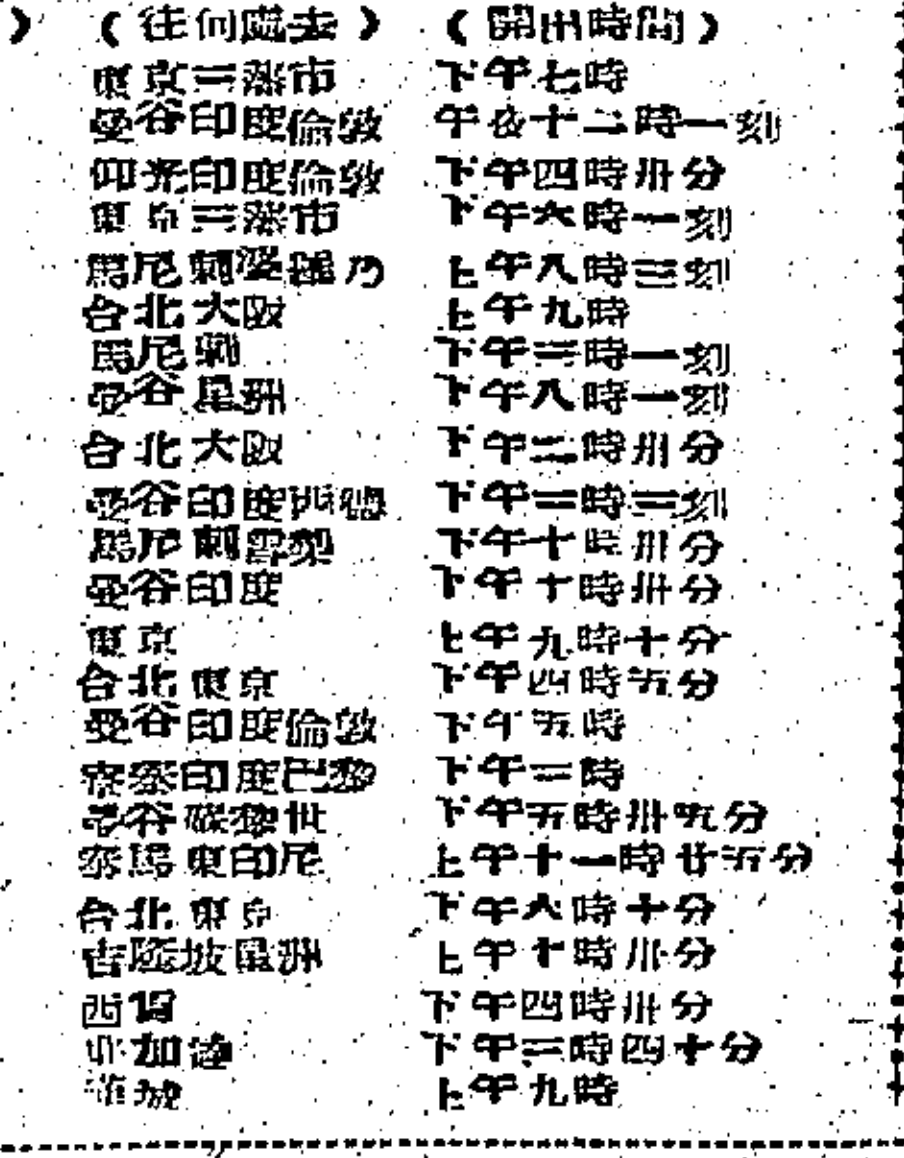 ）（往何處去）（開出時間）
東京三藩市 下午七時
曼谷印度倫敦 午夜十二時一刻
仰光印度倫敦 下午四時卅分
東京三藩市 下午六時一刻
馬尼剌婆羅乃 上午八時三刻
台北大阪 上午九時
馬尼剌 下午三時一刻
曼谷星洲 下午八時一刻
台北大阪 下午二時卅分
曼谷印度西德 下午二時三刻
馬尼剌雪梨 下午十時卅分
曼谷印度 下午十時卅分
東京 上午九時十分
台北東京 下午四時五分
曼谷印度倫敦 下午五時
寮泰印度巴黎 下午二時
谷 世 下午五時卅五分
泰馬東印尼 上午十一時廿五分
台北東京 下午六時十分
吉隆坡星洲 上午十時卅分
西貢 下午四時卅分
加達 下午三時四十分
城 上午九時